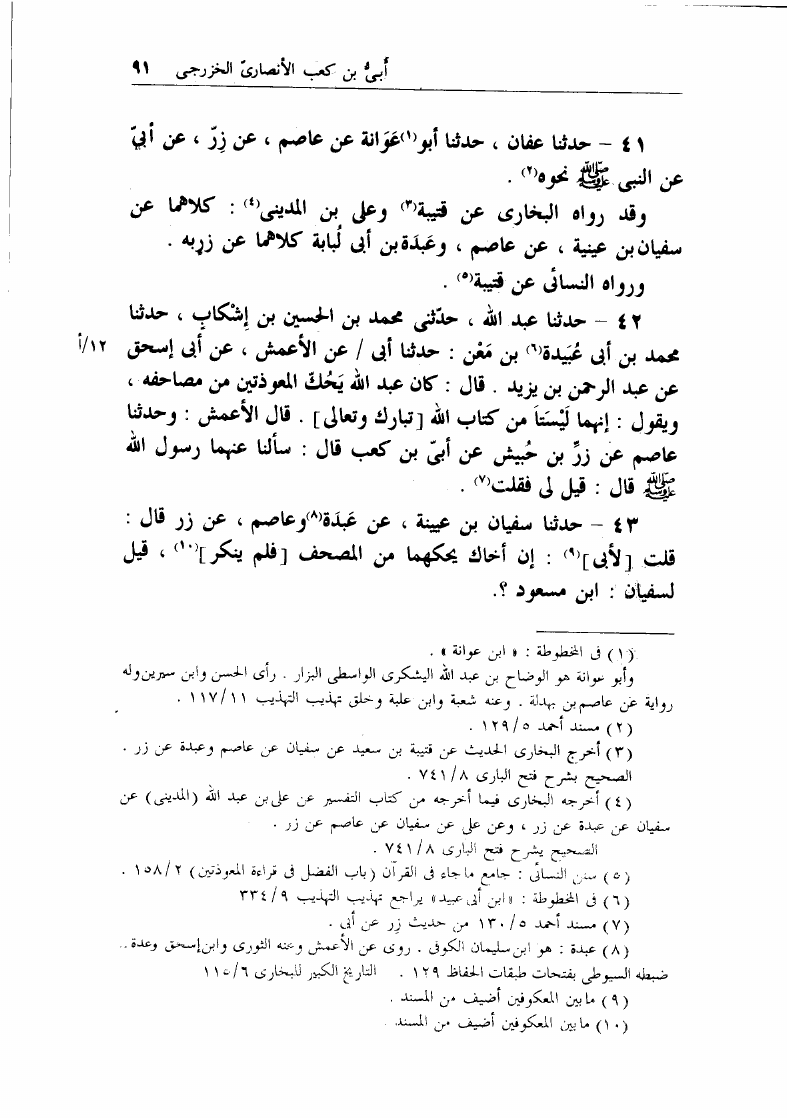 أُبىُّ بن كعب الأنصارىّ الخزرجى ٩١
٤١ – حدثنا عفان ، حدثنا أبو(١)عَوَانة عن عاصم ، عن زِرّ ، عن أبيّ
عن النبى ﷺ نحوه(٢) .
وقد رواه البخارى عن قتيبة(٣) وعلى بن المدينى(٤) : كلاهما عن
سفيان بن عينية ، عن عاصم ، وعَبدَة بن أبى لُبابة كلاهما عن زرٍ به .
ورواه النسائى عن قتيبة(٥) .
٤٢ – حدثنا عبد الله ، حدّثنى محمد بن الحسين بن إِشْكابٍ ، حدثنا
محمد بن أبى عُبَيدة(٦) بن مَعْن : حدثنا أبى / عن الأعمش ، عن أبى إسحق ١٢/أ
عن عبد الرحمن بن يزيد . قال : كان عبد الله يَحُكّ المعوذتين من مصاحفه ،
ويقول : إنهما لَيْسَتَا من كتاب الله [تبارك وتعالى] . قال الأعمش : وحدثنا
عاصم عن زرِّ بن حُبيش عن أبىّ بن كعب قال : سألنا عنهما رسول الله
ﷺ قال : قيل لى فقلت(٧) .
٤٣ – حدثنا سفيان بن عيينة ، عن عَبدَة(٨)وعاصم ، عن زر قال :
قلت [لأبى](٩) : إن أخاك يحكهما من المصحف [فلم ينكر](١٠) ، قيل
لسفيان : ابن مسعود ؟.
(١) فى المخطوطة : « ابن عوانة » .
وأبو عوانة هو الوضاح بن عبد الله اليشكرى الواسطى البزار . رأى الحسن وابن سيرين وله
رواية عن عاصم بن بهدلة . وعنه شعبة وابن علية وخلق تهذيب التهذيب ١١/١١٧ .
(٢) مسند أحمد ٥/١٢٩ .
(٣) أخرج البخارى الحديث عن قتيبة بن سعيد عن سفيان عن عاصم وعبدة عن زر .
الصحيح بشرح فتح البارى ٨/٧٤١ .
(٤) أخرجه البخارى فيما أخرجه من كتاب التفسير عن على بن عبد الله (المدينى) عن
سفيان عن عبدة عن زر ، وعن على عن سفيان عن عاصم عن زر .
الصحيح بشرح فتح البارى ٨/٧٤١ .
(٥) سنن النسائى : جامع ما جاء فى القرآن (باب الفضل فى قراءة المعوذتين) ٢/١٥٨ .
(٦) فى المخطوطة : «ابن أبى عبيد» يراجع تهذيب التهذيب ٩/٣٣٤
(٧) مسند أحمد ٥/١٣٠ من حديث زر عن أبى .
(٨) عبدة : هو ابن سليمان الكوفى . روى عن الأعمش وعنه الثورى وابن إسحق وعدة ..
ضبطه السيوطى بفتحات طبقات الحفاظ ١٢٩ . التاريخ الكبير للبخارى ٦/١١٥
(٩) ما بين المعكوفين أضيف من المسند .
(١٠) ما بين المعكوفين أضيف من المسند .